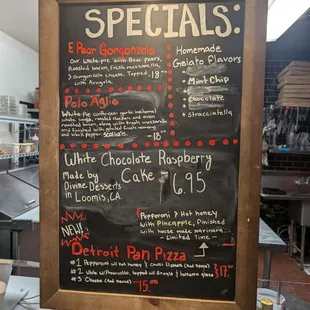 SPECIALS:
E Pear Gorgonzola
Our White pie with Bosc pears,
Roasted bacon, fresh mozzarella,
& Gorgonzola cheese. Topped
with Arugula. 18
Homemade
Gelato Flavors
• Mint Chip
• Chocolate
• Stracciatella
Polo Aglio
White pie
and black pepper
18
White Chocolate Raspberry
Cake - 6.95
Made by
Divine Desserts
in Loomis, CA.
NEW
Pepperoni & Hot honey
with Pineapple, Finished
with house made marinara
- Limited Time -
Detroit Pan Pizza
#1 Pepperoni w/ hot honey &
#2 White w/ Prosciutto, topped w/ Arugula & balsamic glaze $17.
#3 Cheese 15.